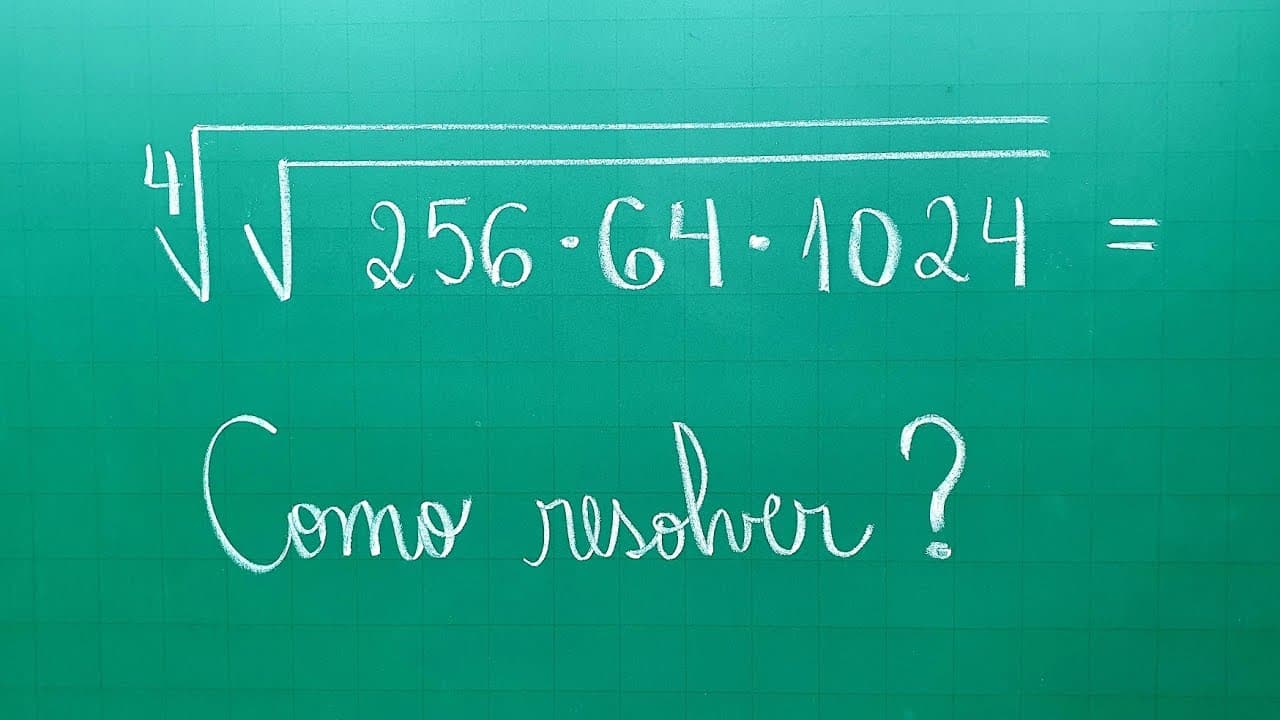 ⁴√√256·64·1024 =
Como resolver?